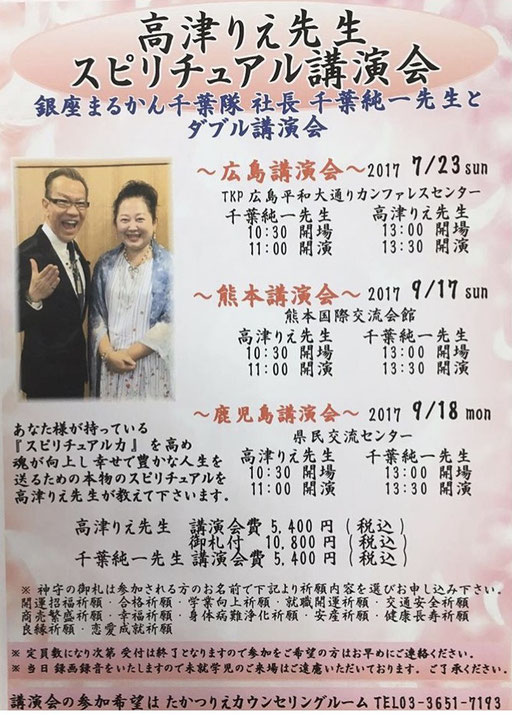 高津りえ先生
スピリチュアル講演会
銀座まるかん千葉隊 社長 千葉純一先生と
ダブル講演会
～広島講演会～2017 7/23 sun
TKP 広島平和大通りカンファレスセンター
千葉純一先生 高津りえ先生
10:30 開場 13:00 開場
11:00 開演 13:30 開演
～熊本講演会～ 2017 9/17 sun
熊本国際交流会館
高津りえ先生 千葉純一先生
10:30 開場 13:00 開場
11:00 開演 13:30 開演
～鹿児島講演会～ 2017 9/18 mon
県民交流センター
高津りえ先生 千葉純一先生
10:30 開場 13:00 開場
11:00 開演 13:30 開演
あなた様が持っている
『スピリチュアル力』を高め
魂が向上し幸せで豊かな人生を
送るための本物のスピリチュアルを
高津りえ先生が教えて下さいます。
高津りえ先生 講演会費 5,400円（税込）
御札付 10,800円（税込）
千葉純一先生 講演会費 5,400円（税込）
※ 神守の御札は参加される方のお名前で下記より祈願内容を選びお申し込み下さい。
開運招福祈願・合格祈願・学業向上祈願・就職開運祈願・交通安全祈願
商売繁盛祈願・幸福祈願・身体病難浄化祈願・安産祈願・健康長寿祈願
良縁祈願・恋愛成就祈願
※ 定員数になり次第 受付は終了となりますので参加をご希望の方はお早めにご連絡ください。
※ 当日 録画録音をいたしますので未就学児のご来場はご遠慮いただいております。ご了承ください。
講演会の参加希望は たかつりえカウンセリングルーム TEL03-3651-7193